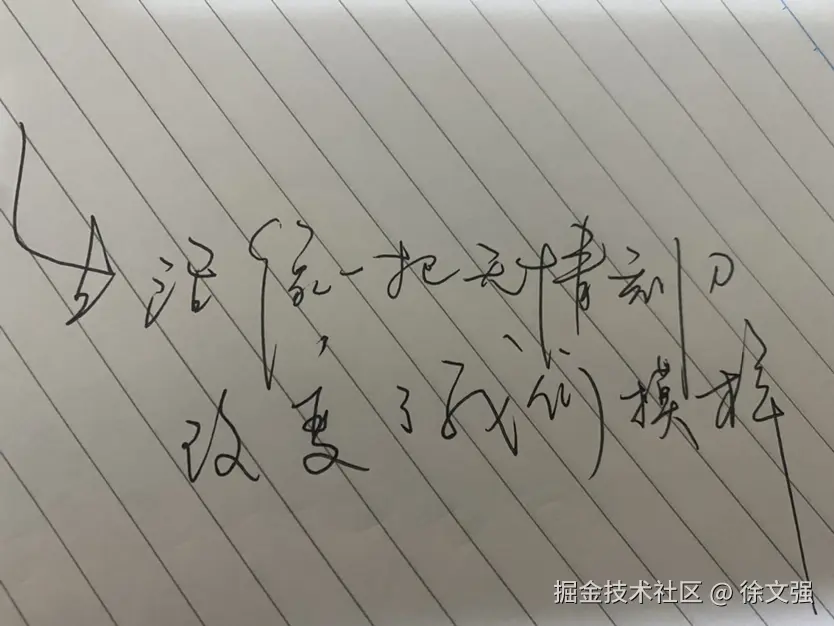 生活像一把无情刻刀
改变了我们模样
掘金技术社区 @ 徐文强